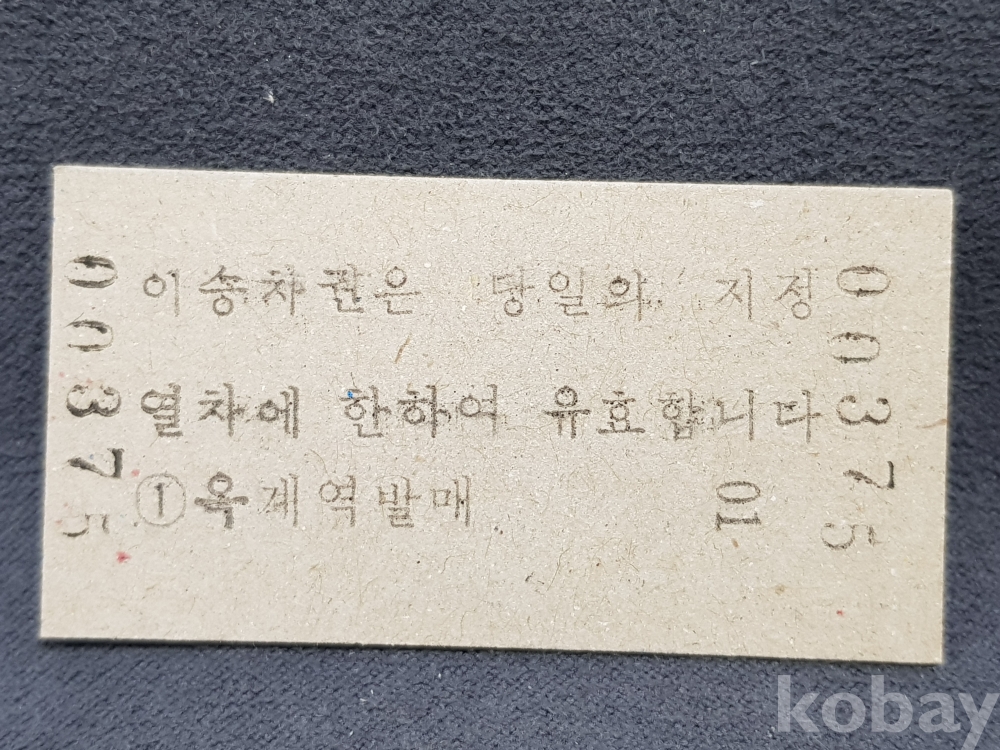 이승차권은 당일의 지정
열차에 한하여 유효합니다
①옥계역발매 01
00375
00375
kobay